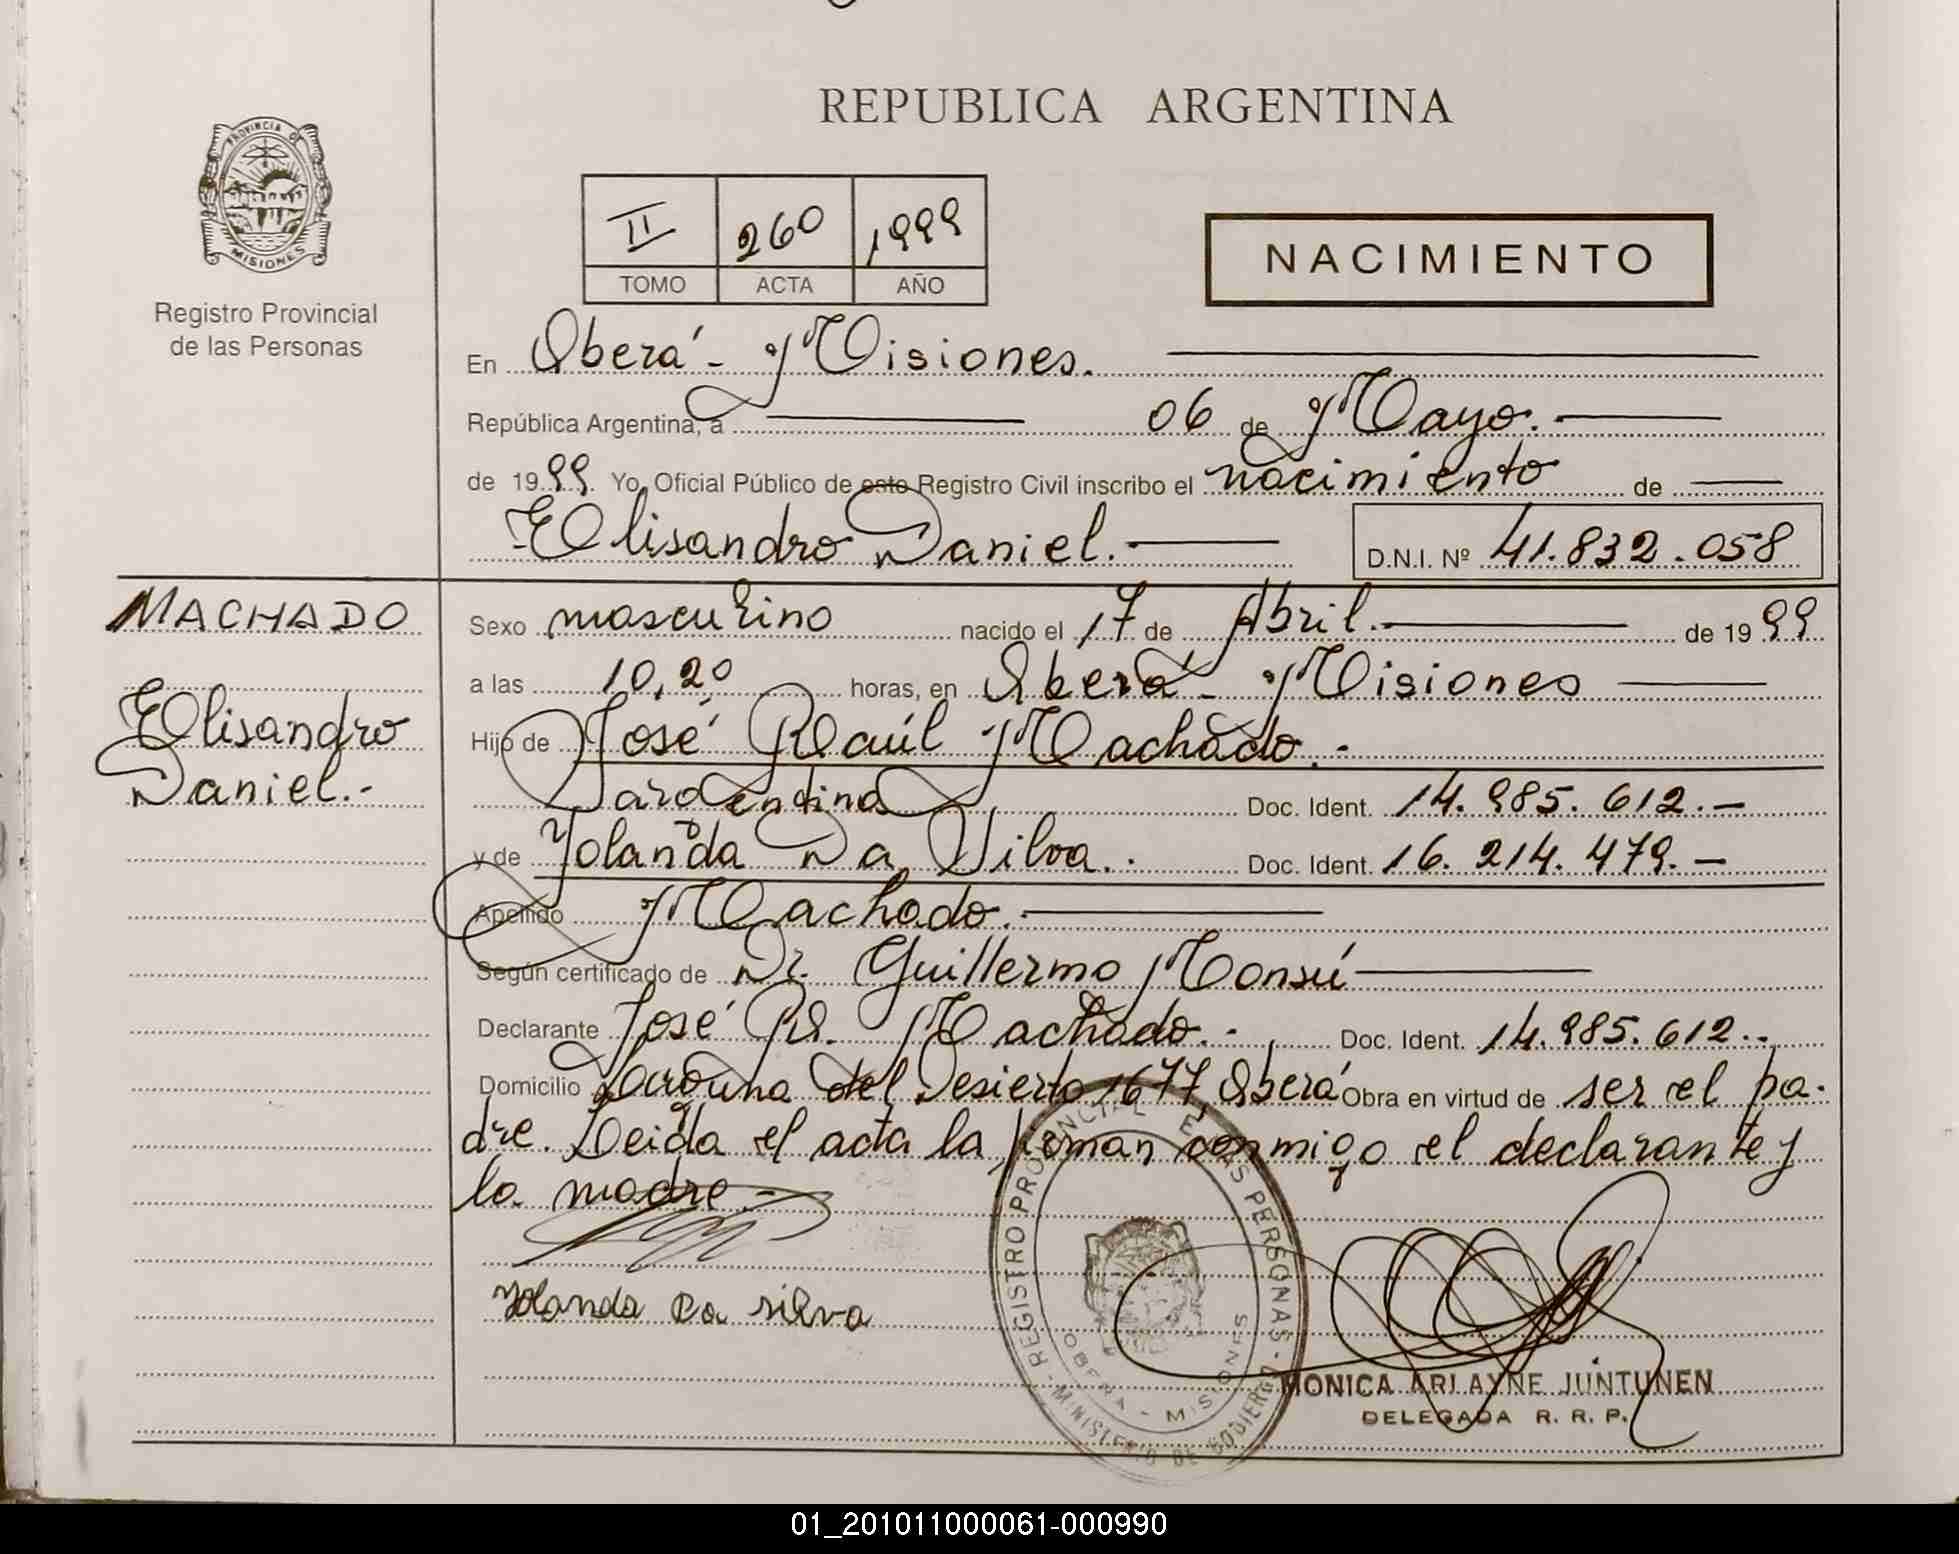 REPUBLICA ARGENTINA
PROVINCIA DE
MISIONES
Registro Provincial
de las Personas
II 260 1999
TOMO ACTA AÑO
NACIMIENTO
En Oberá - Misiones.
República Argentina, a 06 de Mayo.
de 1999. Yo, Oficial Público de este Registro Civil inscribo el nacimiento de
Elisandro Daniel. D.N.I. Nº 41.832.058
MACHADO
Elisandro
Daniel.-
Sexo masculino nacido el 17 de Abril. de 1999
a las 10,20 horas, en Oberá - Misiones
Hijo de José Raúl Machado.-
argentina Doc. Ident. 14.985.612.-
y de Yolanda Da Silva.. Doc. Ident. 16.214.479.-
Apellido Machado.
Según certificado de Dr. Guillermo Monsú
Declarante José R. Machado.- Doc. Ident. 14.985.612..
Domicilio Laguna del Desierto 1677, Oberá Obra en virtud de ser el pa-
dre. Leída el acta la firman conmigo el declarante y
la madre.-
Yolanda Da silva
REGISTRO PROVINCIAL DE LAS PERSONAS - MINISTERIO DE GOBIERNO
OBERA - MISIONES
MONICA ARLAYNE JUNTUNEN
DELEGADA R. R. P.
01_201011000061-000990